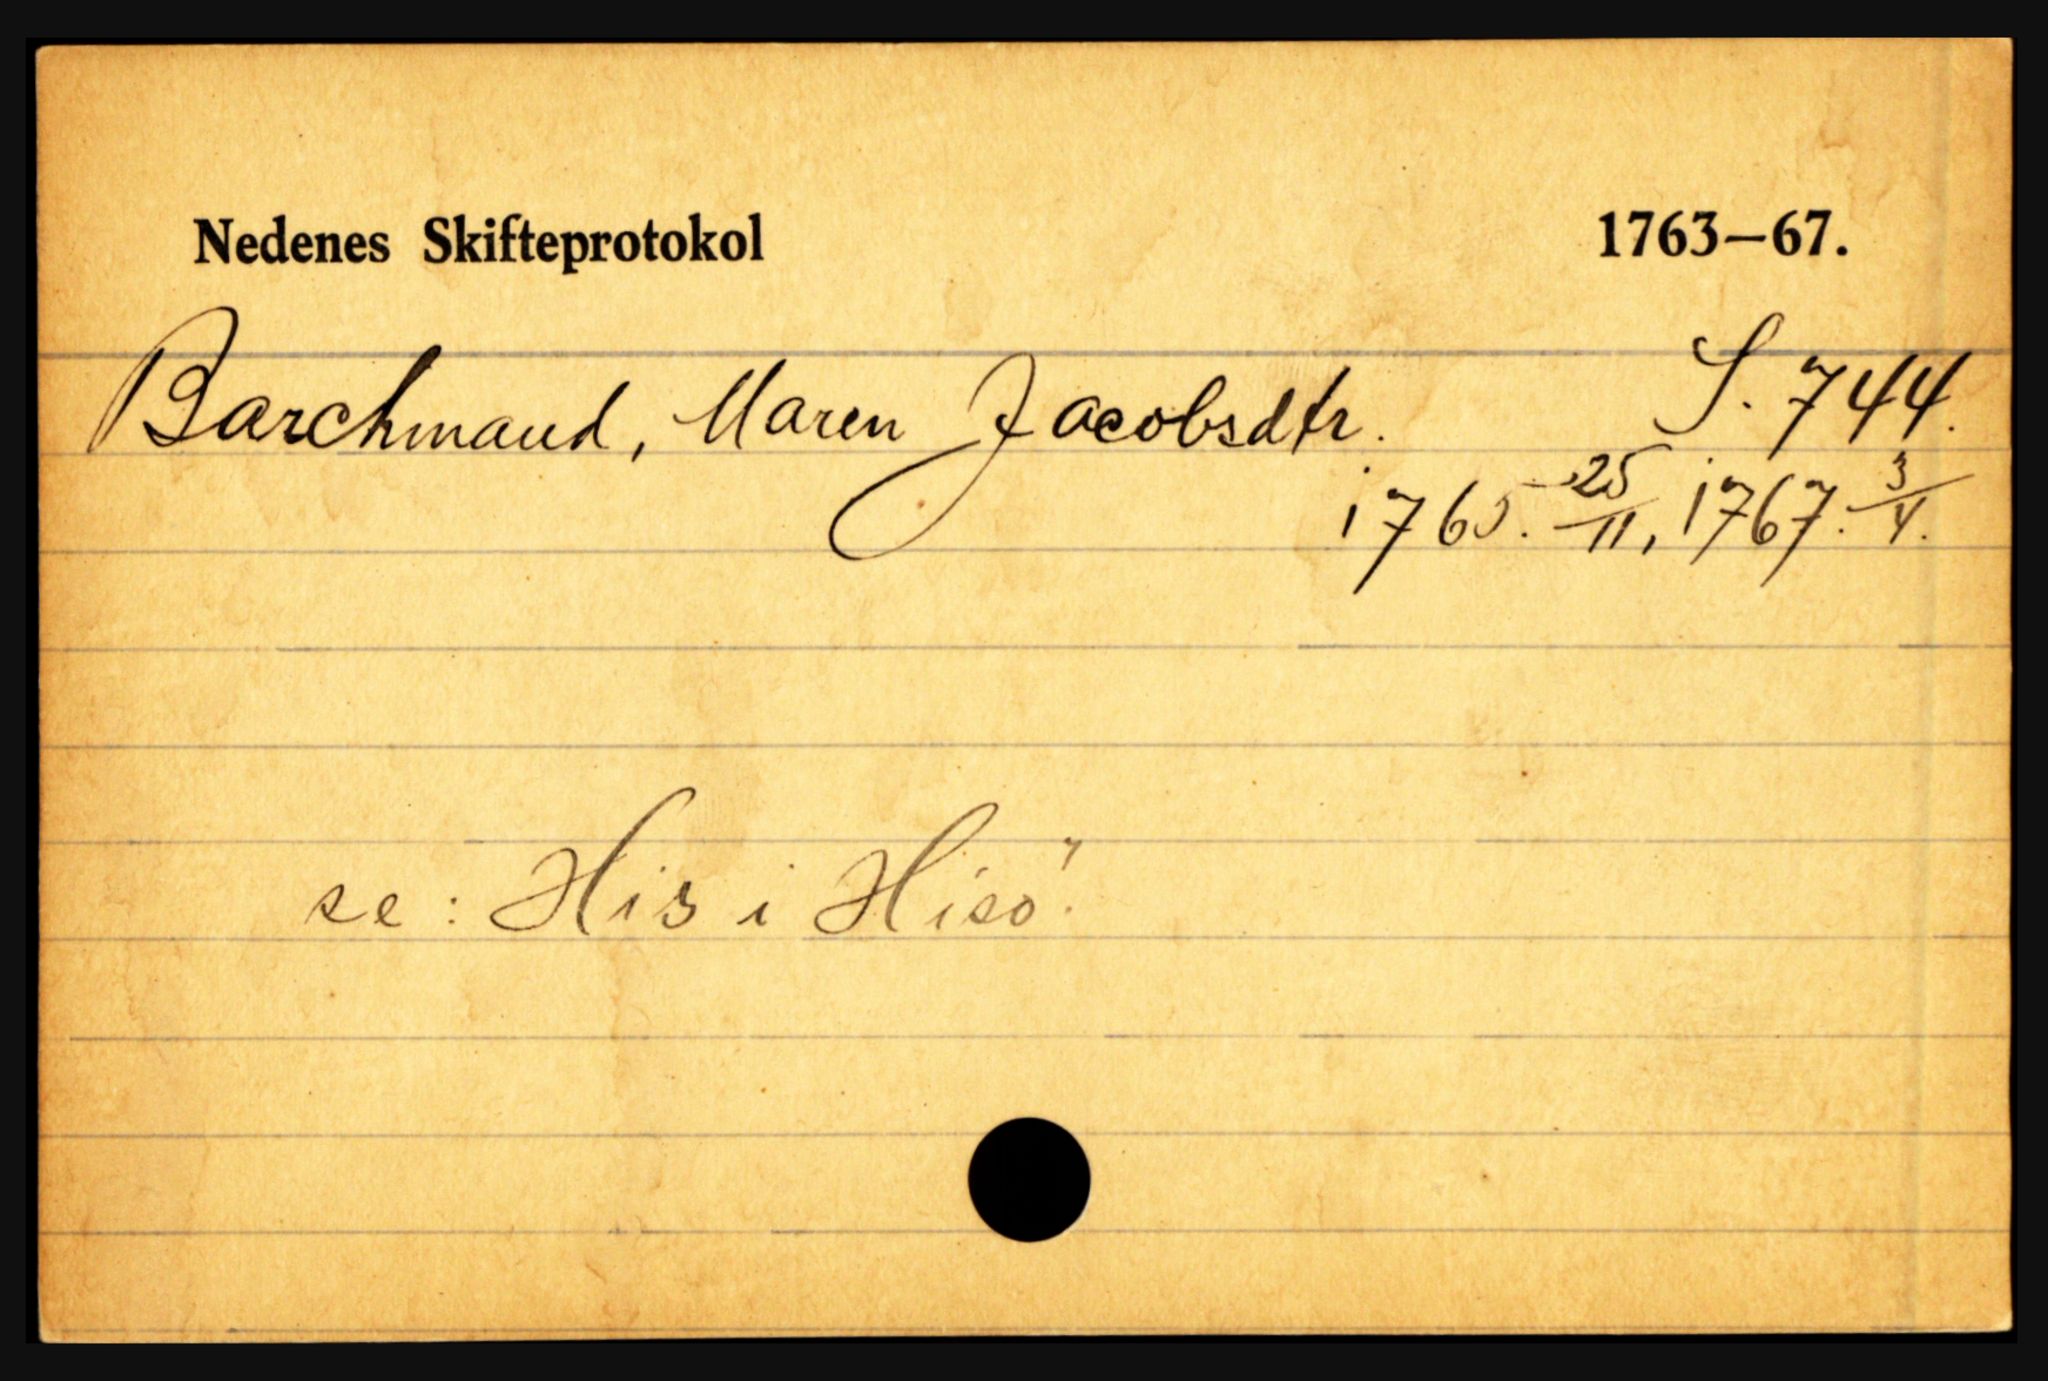 Nedenes Skifteprotokol 1763–67.
Barchmand, Maren Jacobsdtr. S. 744.
1765. 25/11, 1767. 3/4.
se: His i Hisö.